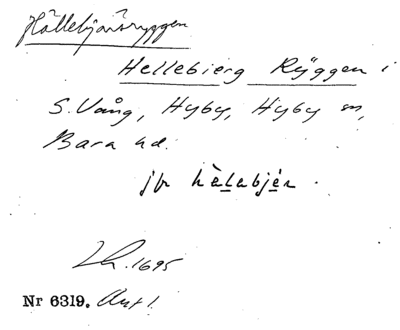 Hällebjärsryggen
Hellebierg Rÿggen i
S. Vång, Hyby, Hyby sn,
Bara hd.
jfr hὲlabjέr.
Lh. 1695
Nr 6319. Ant 1.